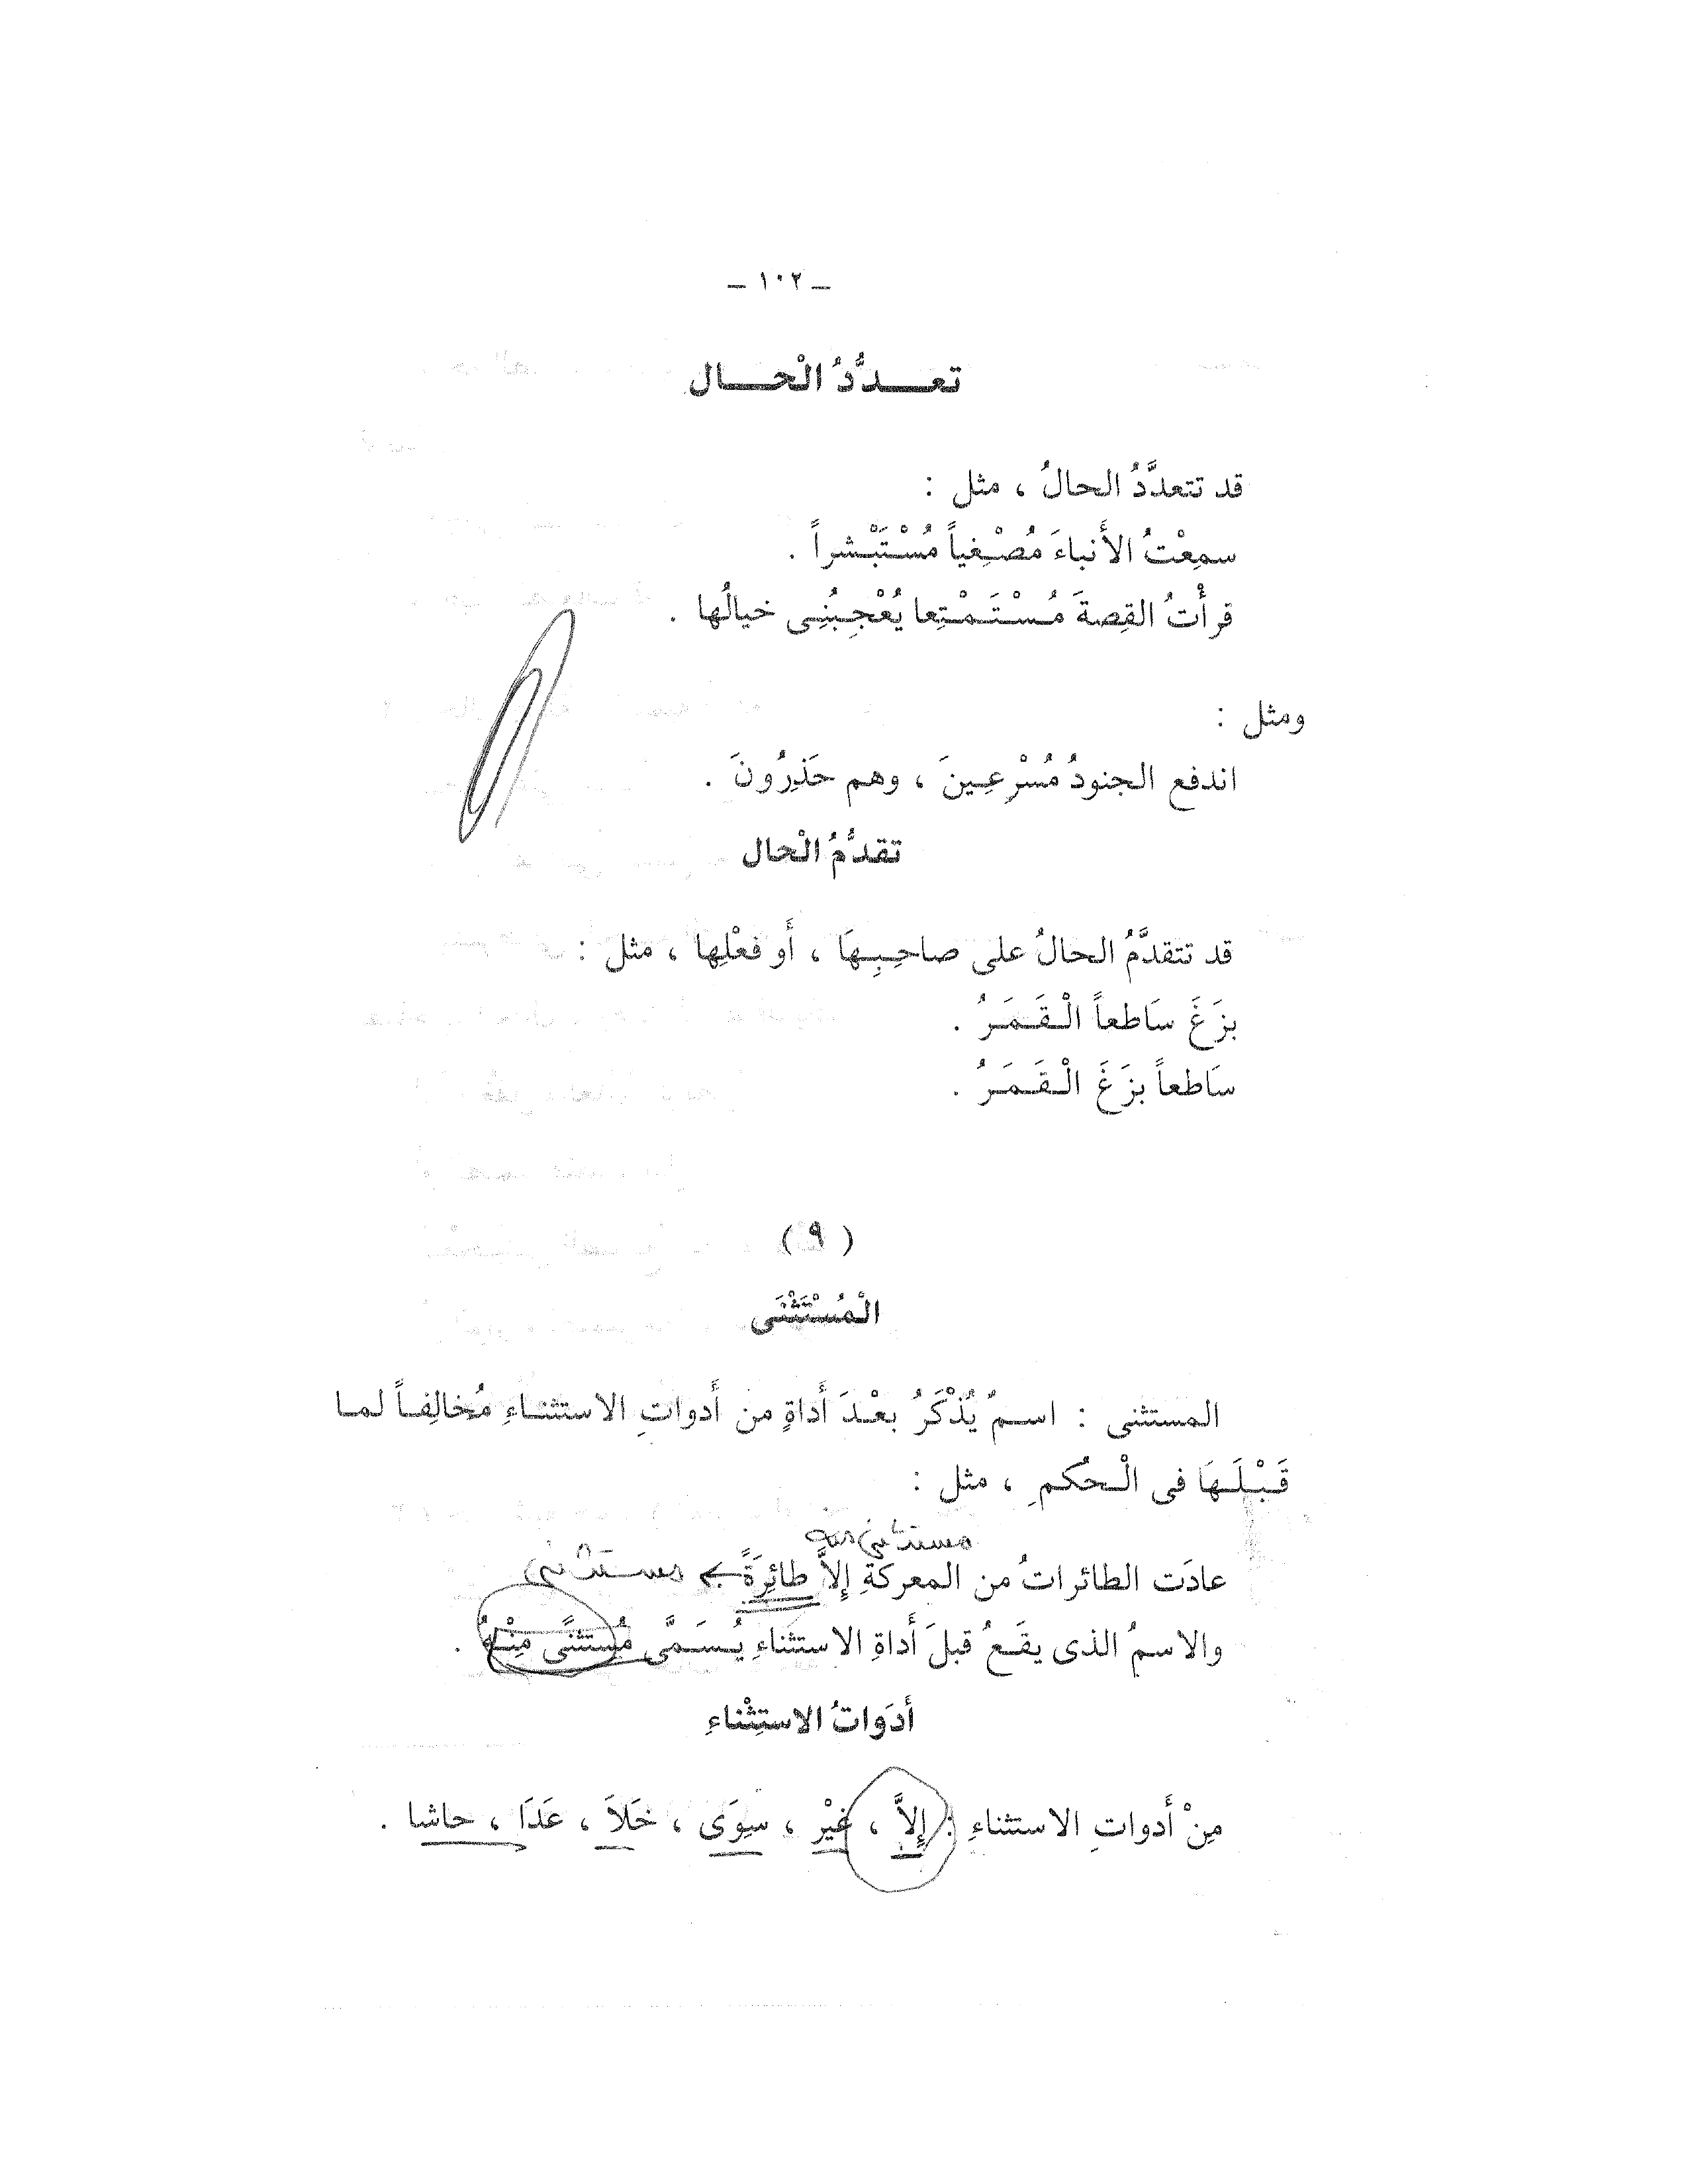 ـ ١٠٢ ـ
تعـــدُّدُ الْحـــال
قد تتعدَّدُ الحالُ ، مثل :
سمِعْتُ الأَنباءَ مُصْـغِياً مُسْـتَبْـشراً .
قرأْتُ القِصةَ مُـسْـتَـمْـتِعا يُعْجِـبُنِـى خيالُها .
ومثل :
اندفع الجنودُ مُسْرِعِـينَ ، وهم حَذِرُونَ .
تقدُّمُ الْحال
قد تتقدَّمُ الحالُ على صاحِـبِـهَا ، أَو فعْلِها ، مثل :
بزَغَ سَاطعاً الْـقَـمَـرُ .
سَاطعاً بزَغَ الْـقَـمَـرُ .
( ٩ )
الْمُسْتَثْنَى
المستثنى : اسـمٌ يُذْكَرُ بعْـدَ أَداةٍ من أَدواتِ الاستثنـاءِ مُخالِفـاً لمـا
قَـبْـلَـهَا فى الْـحُكم ِ ، مثل :
مستثنى منه
عادَت الطائراتُ من المعركةِ إِلاَّ طائِرَةً ← مستثنى
والاسمُ الذى يقَـعُ قبلَ أَداةِ الاستثناءِ يُـسَـمَّى مُستثنًى مِنْـهُ .
أدَواتُ الاستِثْناءِ
مِنْ أَدواتِ الاستثناءِ : إِلاَّ ، غيْر ، سِوَى ، خَلاَ ، عَدَا ، حاشا .